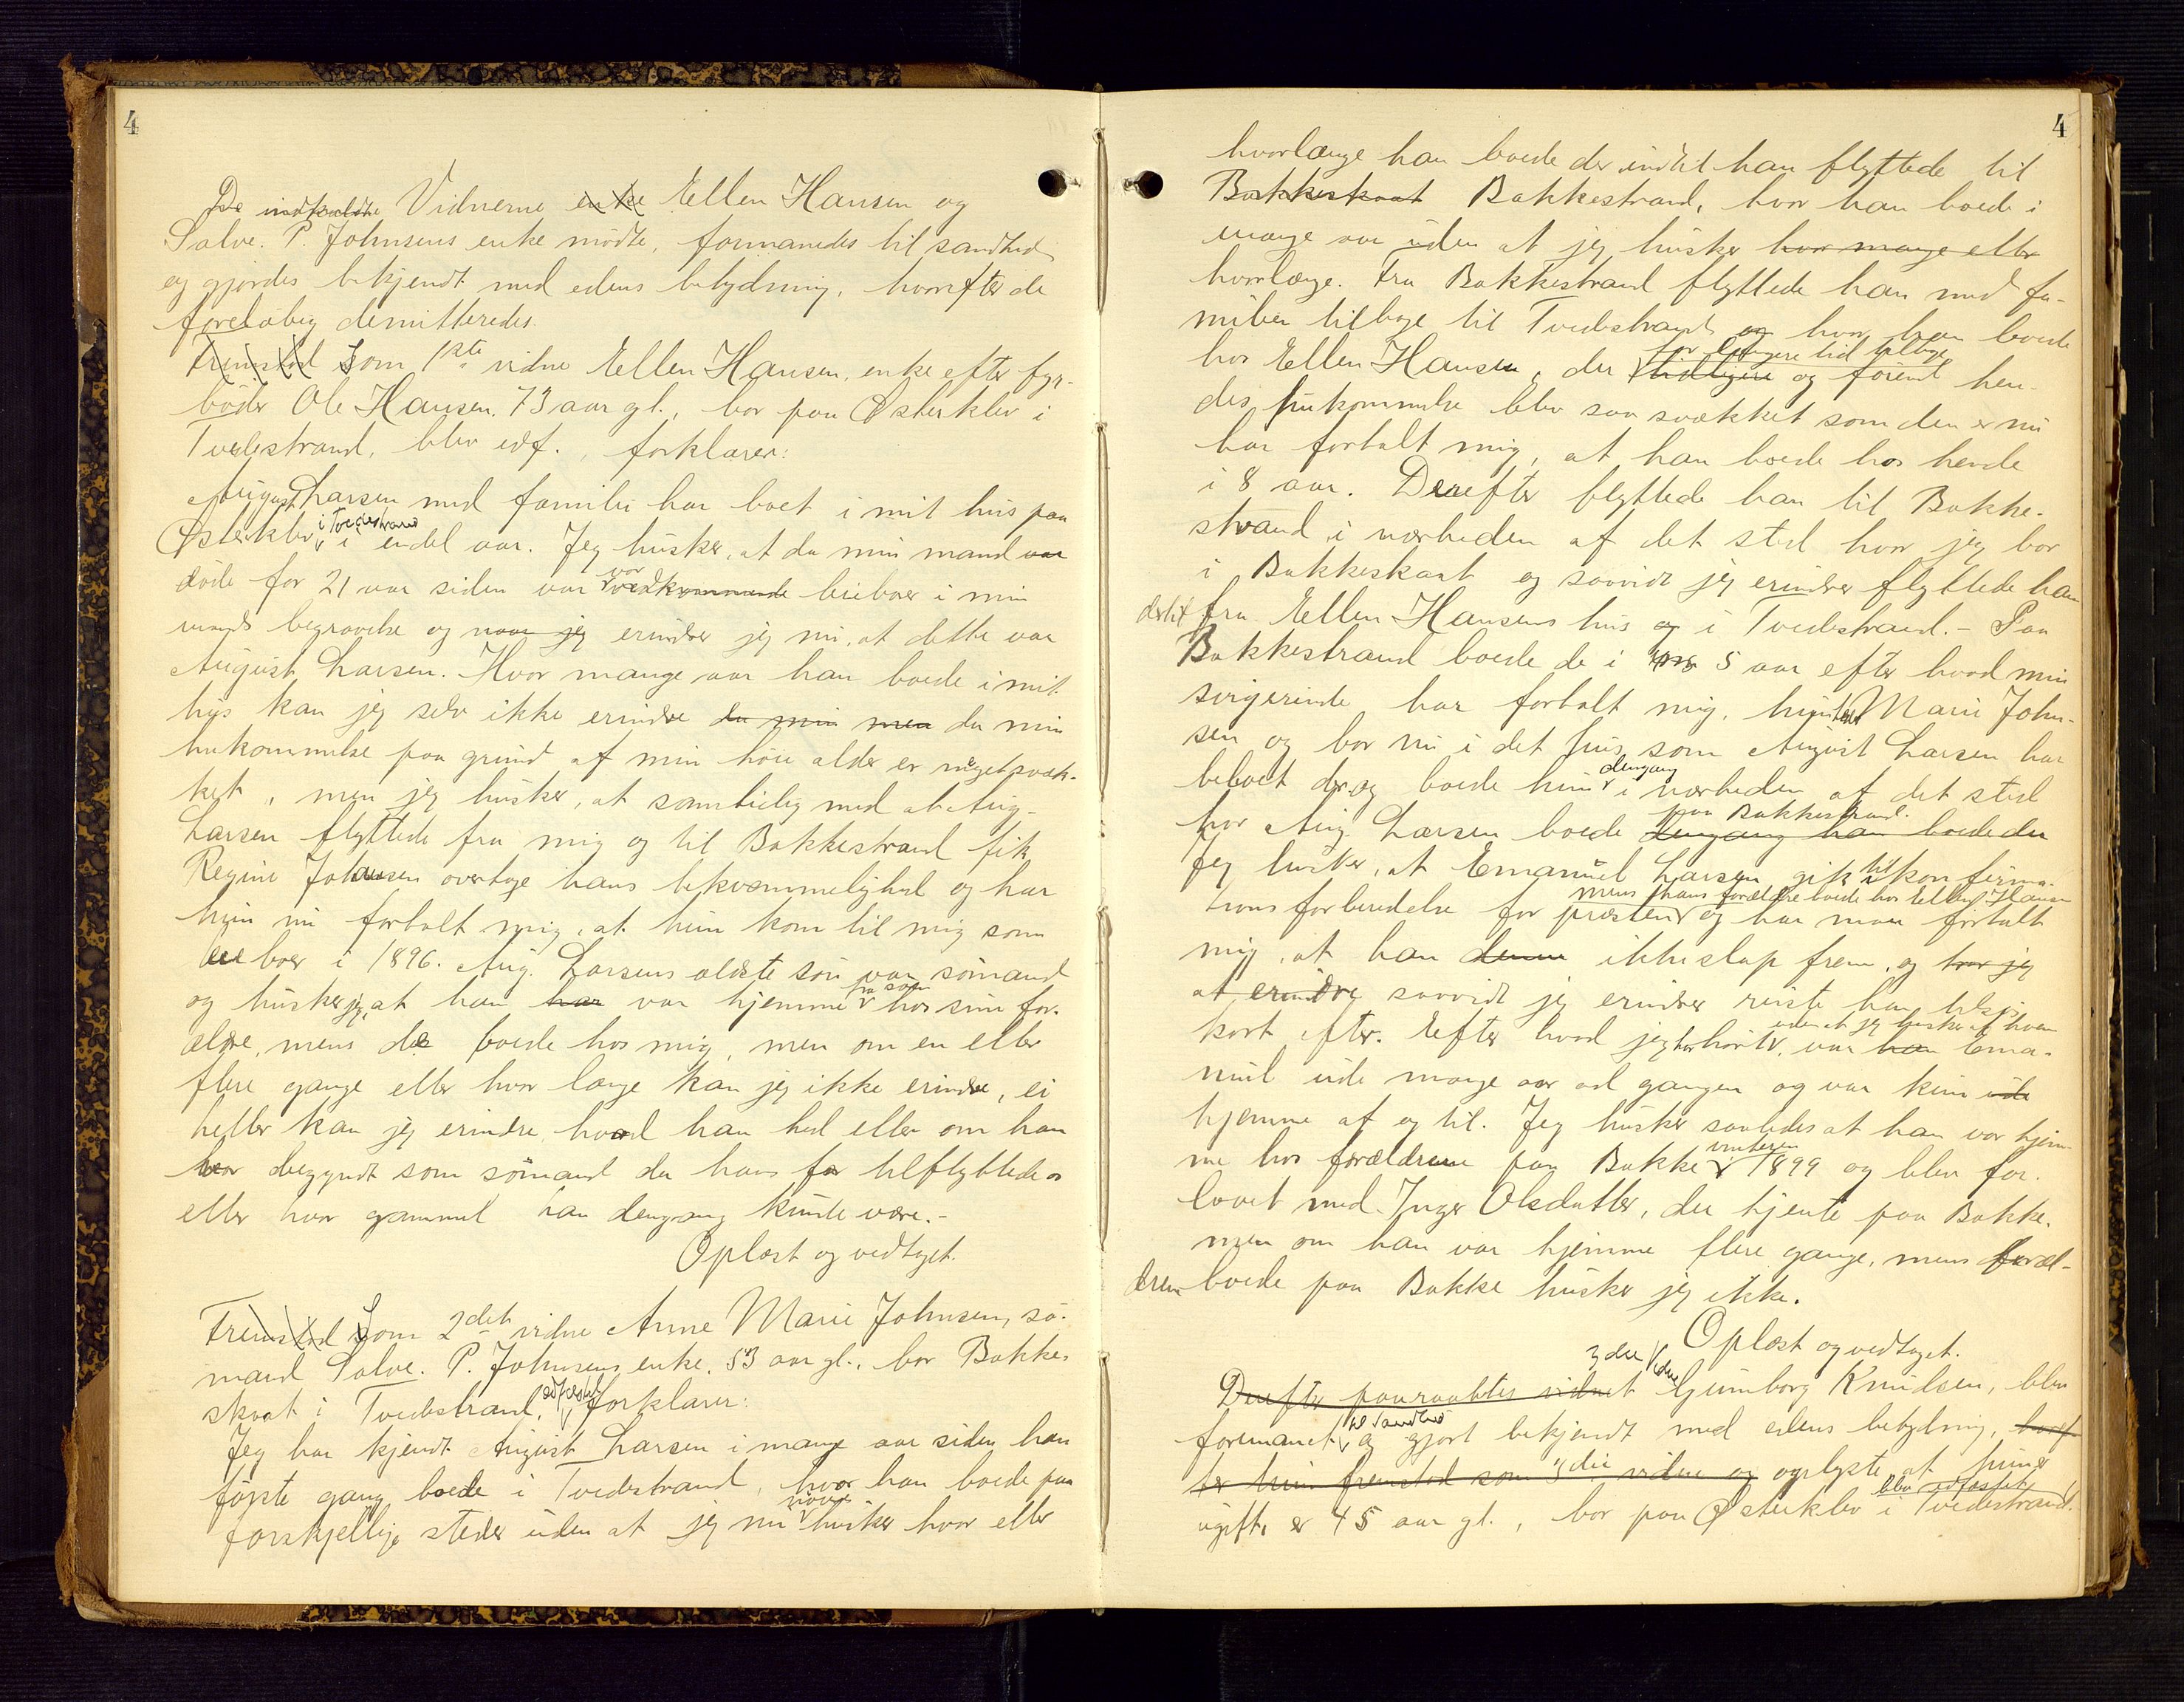 4
De indkaldte Vidnerne enke Ellen Hansen og
Salve. P. Johnsens enke mødte, formanedes til sandhed
og gjordes bekjendt med edens betydning, hvorefter de
foreløbig demitteredes.
Fremstod Som 1ste vidne Ellen Hansen, enke efter fyr-
bøder Ole Hansen. 73 aar gl., bor paa Østerklev i
Tvedestrand, blev edf., forklarer:
August Larsen med familie har boet i mit hus paa
Østerklev i Tvedestrand i endel aar. Jeg husker, at da min mand var
døde for 21 aar siden var vor vedkommende leieboer i min
mands begravelse og naar jeg erindrer jeg nu, at dette var
August Larsen. Hvor mange aar han boede i mit
hus kan jeg selv ikke erindre da min men da min
hukommelse paa grund af min høie alder er meget svæk-
ket, men jeg husker, at samtidig med at Aug.
Larsen flyttede fra mig og til Bakkestrand fik
Regine Johnsen overtage hans bekvemmelighed og har
hun nu fortalt mig, at hun kom til mig som
leieboer i 1896. Aug. Larsens ældste søn var sømand
og husker jeg, at han har var hjemme fra søen hos sine for-
ældre, mens de boede hos mig, men om en eller
flere gange eller hvor længe kan jeg ikke erindre, ei
heller kan jeg erindre hvad han hed eller om han
var begyndt som sømand da hans far tilflyttede os
eller hvor gammel han dengang kunde være.-
Oplæst og vedtaget.
Fremstod Som 2det vidne Anne Marie Johnsen, sø-
mand Salve. P. Johnsens enke, 53 aar gl., bor Bakke-
skaat i Tvedestrand, edfæstet, forklarer:
Jeg har kjendt August Larsen i mange aar siden han
første gang boede i Tvedestrand, hvor han boede paa
forskjellige steder uden at jeg nu nøie husker hvor eller
4
hvorlænge han boede der indtil han flyttede til
Bakkeskaat Bakkestrand, hvor han boede i
mange aar uden at jeg husker hvor mange eller
hvorlænge. Fra Bakkestrand flyttede han med fa-
milien tilbage til Tvedestrand og hvor han boede
hos Ellen Hansen, der for længere tid tilbage tidligere og førend hen-
des hukommelse blev saa svækket som den er nu
har fortalt mig, at han boede hos hende
i 8 aar. Derefter flyttede han til Bakke-
strand i nærheden af det sted hvor jeg bor
i Bakkeskaat og saavidt jeg erindrer flyttede han
dertil fra Ellen Hansens hus og i Tvedestrand.- Paa
Bakkestrand boede de i 5 aar efter hvad min
svigerinde har fortalt mig, hun hed Marie John-
sen og bor nu i det hus som August Larsen har
beboet der og boede hun dengang i nærheden af det sted
hvor Aug. Larsen boede paa Bakkestrand. dengang han boede der
Jeg husker, at Emanuel Larsen gik til konfirma-
tionsforberedelse for præsten mens hans forældre boede hos Ellen Hansen og har man fortalt
mig, at han denne ikke slap frem, og tror jeg
at erindre saavidt jeg erindrer reiste han tilsjøs
kort efter. Efter hvad jeg har hørt uden at jeg husker af hvem, var han Ema-
nuel ude mange aar ad gangen og var kun ude
hjemme af og til. Jeg husker saaledes at han var hjem-
me hos forældrene paa Bakke vinteren i 1899 og blev for-
lovet med Inger Olsdatter, der tjente paa Bakke.
men om han var hjemme flere gange, mens foræl-
drene boede paa Bakke husker jeg ikke.
Oplæst og vedtaget.
Derefter paaraabtes vidnet 3die Vidne Gunborg Knudsen, blev
formanet til sandhed og gjort bekjendt med edens betydning, hvoref-
ter hun fremstod som 3die vidne og oplyste at hun er
ugift, er 45 aar gl., bor paa Østerklev i Tvedestrand. blev edfæstet